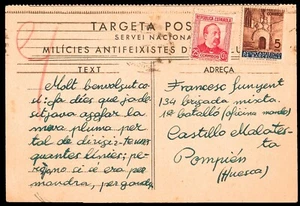 TARGETA POS
SERVEI NACIONA
MILÍCIES ANTIFEIXISTES D
TEXT
ADREÇA
Molt benvolgut co-
sí: fa dies que ja de-
sitjava agafar la
meva pluma per
tal de dirigir-te unes
quantes línies; pe-
rò no sé si era per
mandra, per ganda
Francesc Gunyent
134 brigada mixta.
1er batalló (oficina mando)
Castillo Malates-
ta
Pompién
(Huesca)
5